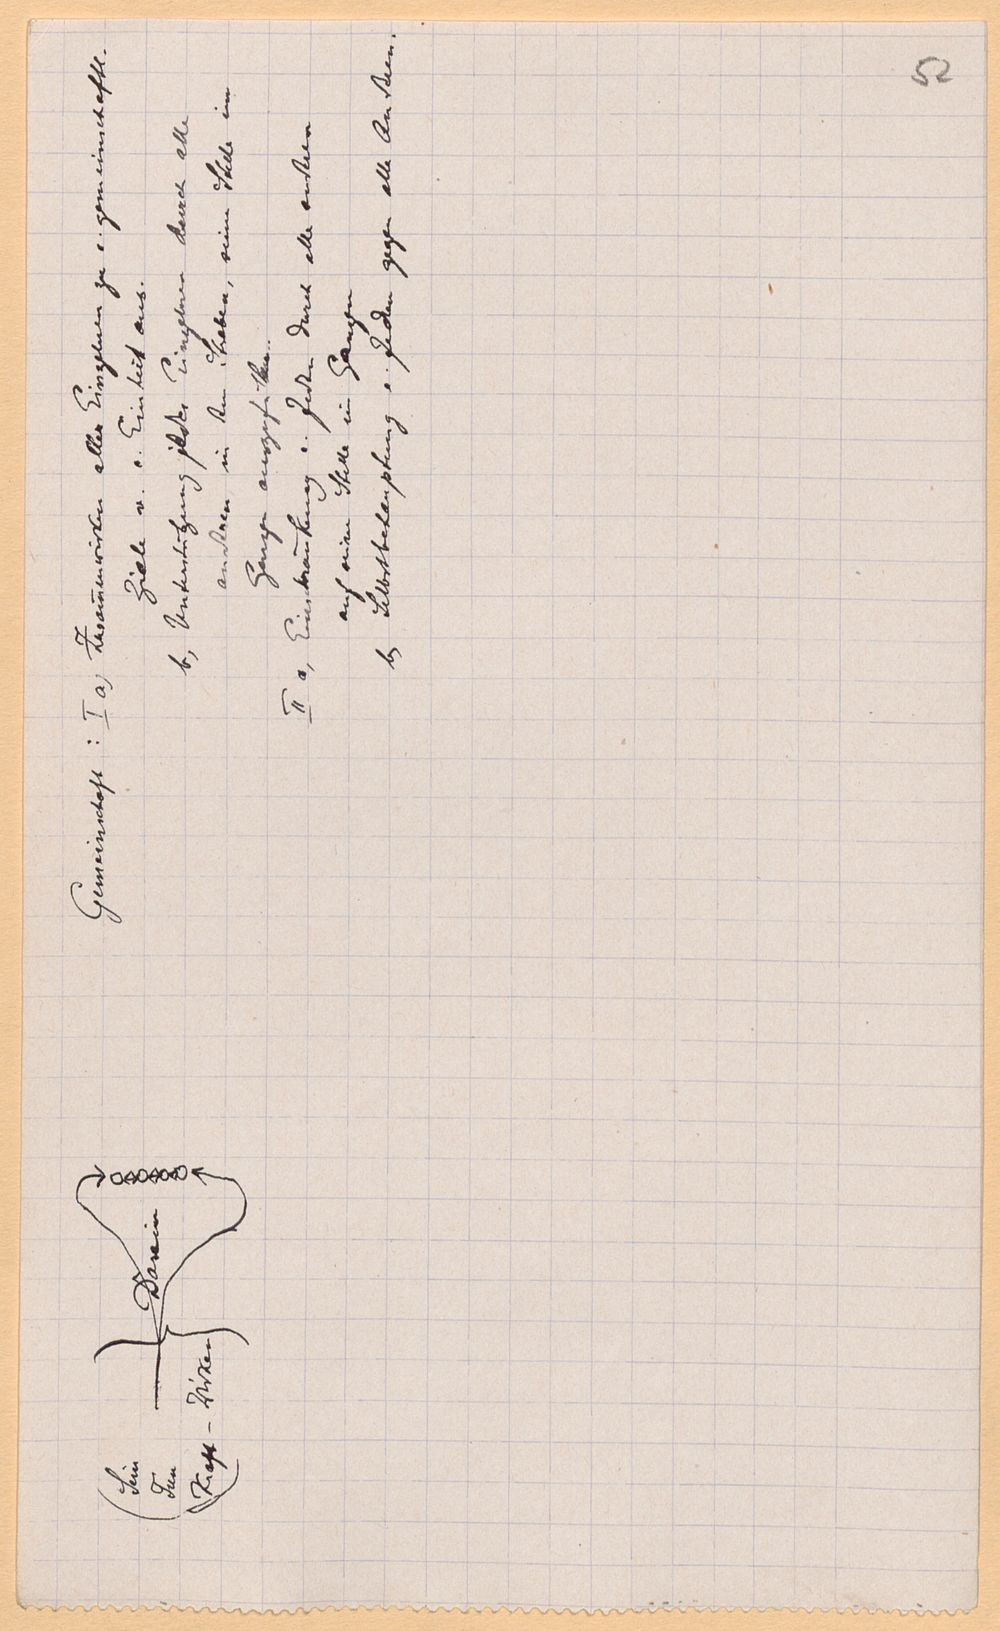 52
Gemeinschaft: I a, Zusam̄enwirken aller Einzelnen zu e. gemeinschaftl.
Ziele v. e. Einheit aus.
b, Unterstützung jedes Einzelnen durch alle
anderen in dem Streben, seine Stelle im
Ganzen auszufüllen.
II a, Einschränkung e. Jeden durch alle anderen
auf seine Stelle im Ganzen
b, Selbstbehauptung e. Jeden gegen alle Anderen.
Sein
Tun
Kraft – Wirken
Dasein